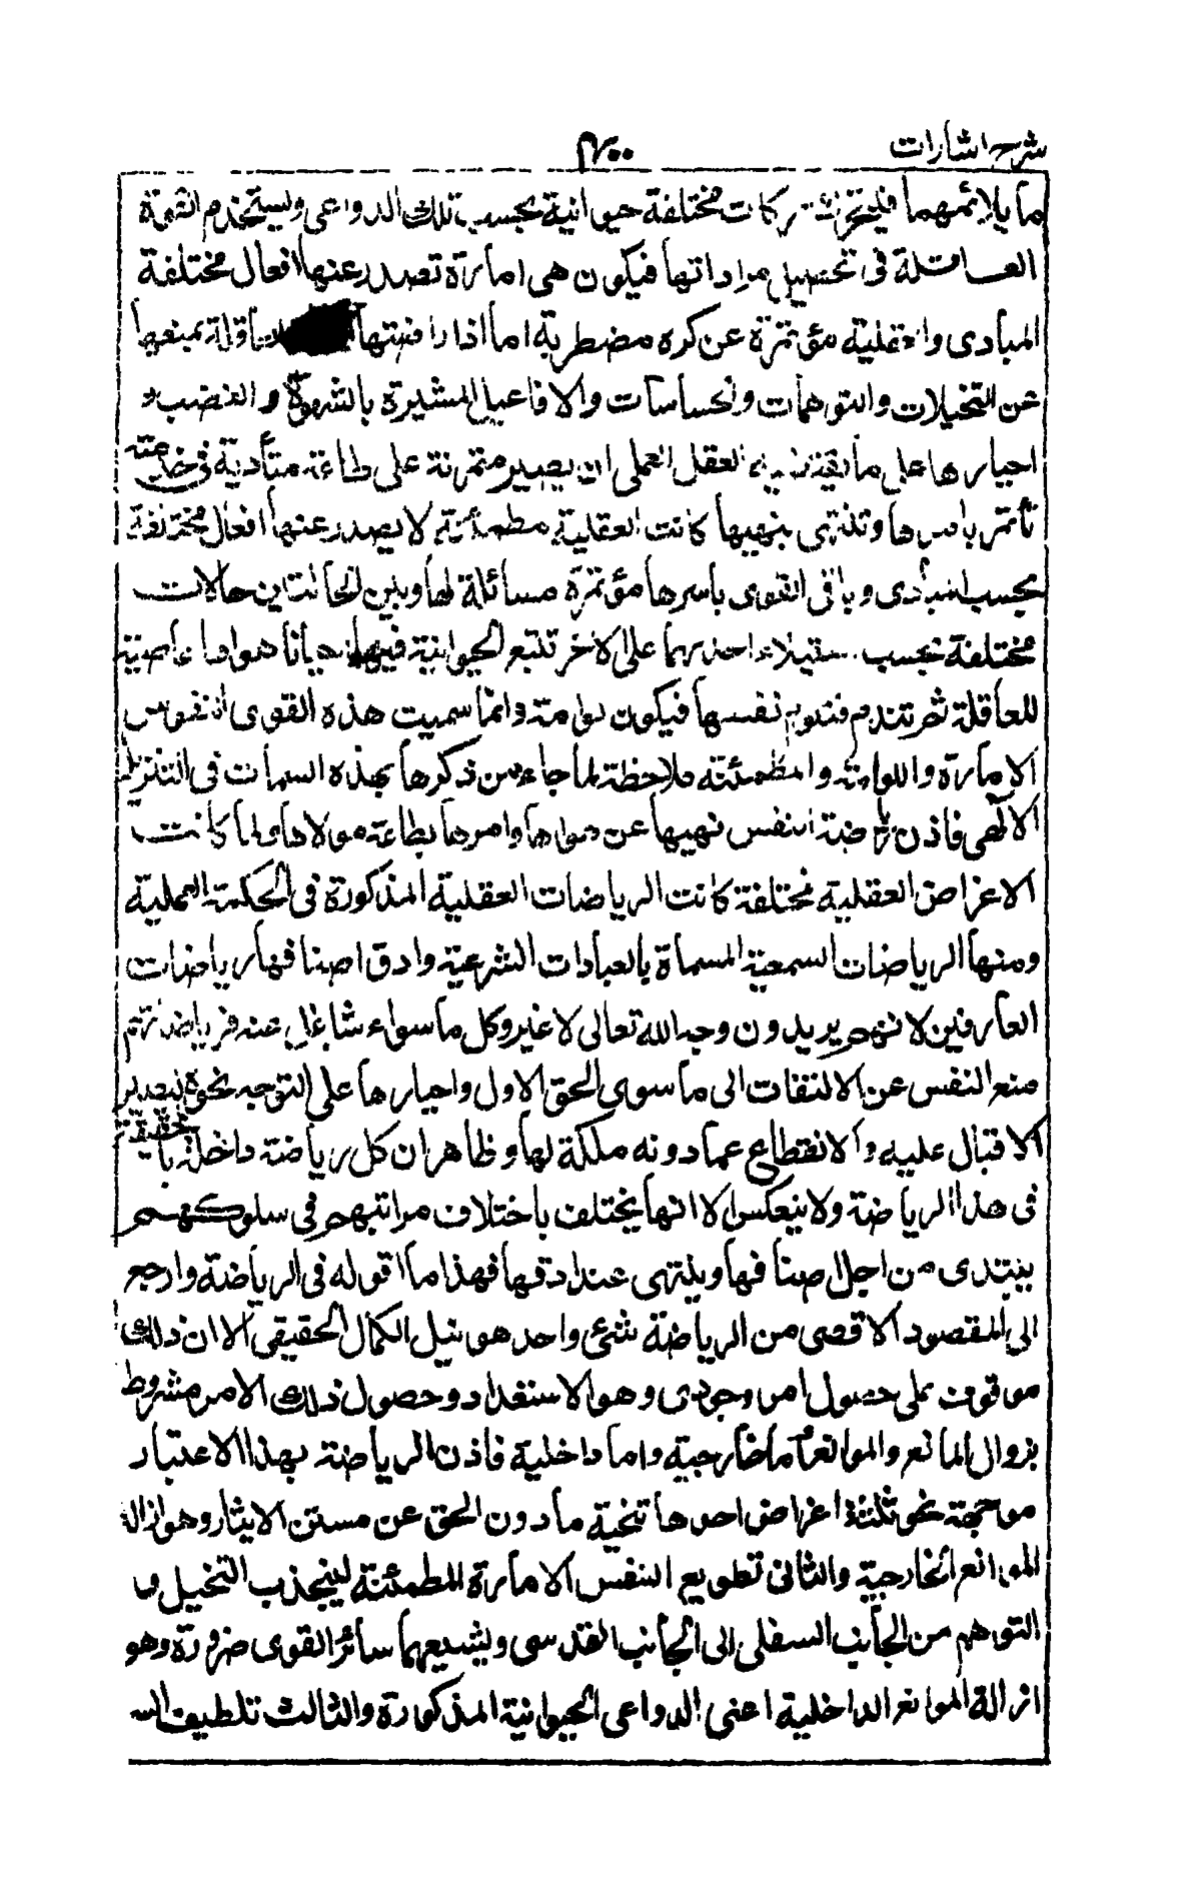 شرح اشارات
ما يلائمهما فيتحرك حركات مختلفة حيوانية بحسب تلك الدواعى ويستخدم القوة
العاقلة فى تحصيل مراداتها فيكون هى امارة تصدر عنها افعال مختلفة
المبادى والعقلية مؤتمرة عن كره مضطربة اما اذا راضتها العاقلة بمنعها
عن التخيلات والتوهمات والحساسات والافاعيل المشيرة بالشهوة والغضب و
اجبارها على ما يقتضيه العقل العملى ان يصير متمرنة على طاعة متأدبة فى خدمته
تأتمر بامرها وتنتهى بنهيها كانت العقلية مطمئنة لا يصدر عنها افعال مختلفة
بحسب المبادى وباقى القوى باسرها مؤتمرة مسائلة لها وبين الحالتين حالات
مختلفة بحسب استيلاء احدهما على الاخر تتبع الحيوانية فيها احيانا هواها عاصية
للعاقلة ثم تندم فتلوم نفسها فيكون لوامة وانما سميت هذه القوى النفوس
الامارة واللوامة والمطمئنة ملاحظة لما جاء من ذكرها بهذه السمات فى التنزيل
الالهى فاذن رياضة النفس نهيها عن هواها وامرها بطاعة مولاها ولما كانت
الاغراض العقلية مختلفة كانت الرياضات العقلية المذكورة فى الحكمة العملية
ومنها الرياضات السمعية المسماة بالعبادات الشرعية وادق اصنافها رياضات
العارفين لانهم يريدون وجه الله تعالى لا غير وكل ما سواه شاغل عنه فرياضتهم
منع النفس عن الالتفات الى ما سوى الحق الاول واجبارها على التوجه نحوه ليصير
الاقبال عليه والانقطاع عما دونه ملكة لها وظاهر ان كل رياضة داخلة بالحقيقة
فى هذا الرياضة ولا ينعكس الا انها يختلف باختلاف مراتبهم فى سلوكهم
يبتدى من اجل اصنافها وينتهى عند ادقها فهذا ما اقوله فى الرياضة وارجع
الى المقصود الاقصى من الرياضة شئ واحد هو نيل الكمال الحقيقى الا ان ذلك
موقوف على حصول امر وجودى وهو الاستعداد وحصول ذلك الامر مشروط
بزوال المانع والموانع اما خارجية واما داخلية فاذن الرياضة بهذا الاعتبار
موجهة نحو ثلثة اغراض احدها تنحية ما دون الحق عن مستن الايثار وهو ازالة
الموانع الخارجية والثانى تطويع النفس الامارة للمطمئنة لينجذب التخيل و
التوهم من الجانب السفلى الى الجانب القدسى ويشيعهما سائر القوى ضرورة وهو
ازالة الموانع الداخلية اعنى الدواعى الحيوانية المذكورة والثالث تلطيف الس